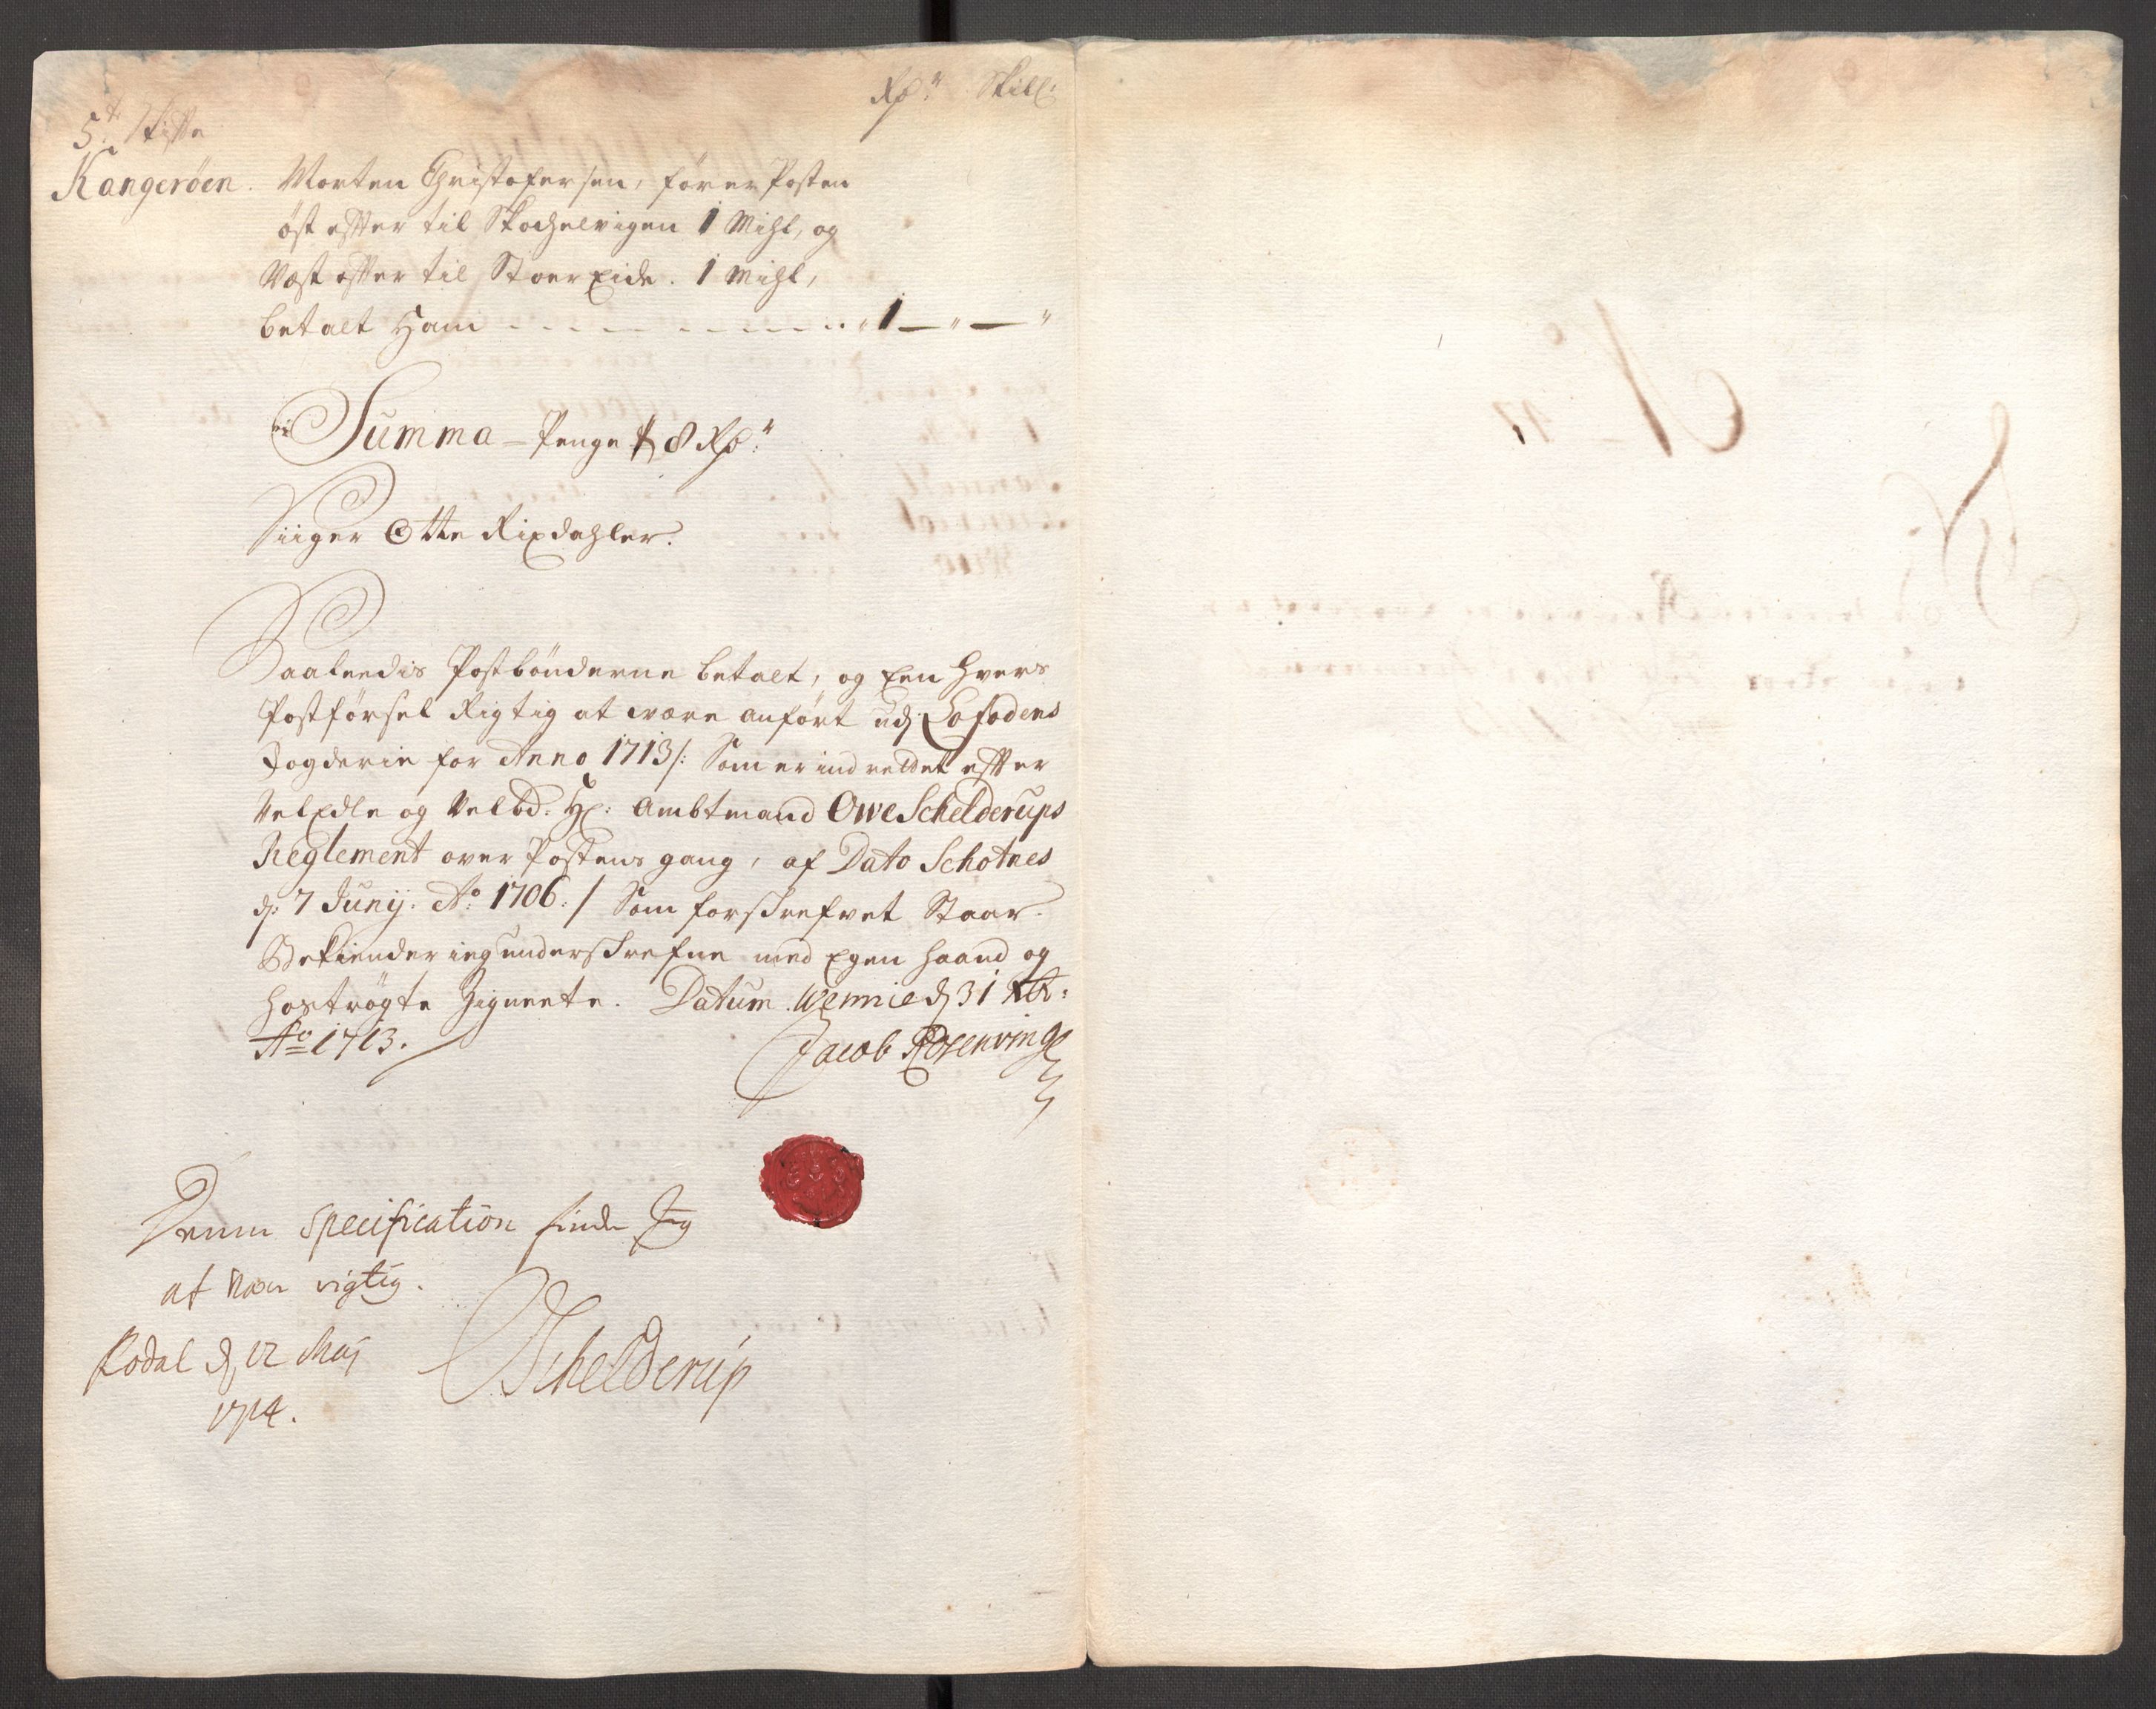 Rdr Skill:
5te Skifte
Kangeröen. Morten Christofersen, fører Posten
øst effter til Skochelvigen 1 Mihl, og
Væst effter til StoerEide. 1 Mihl,
betalt Ham - - - - - - - - - „ 1 — „ — „
Summa - Penge 8 Rdr
Siiger Otte Rixdahler.
Saaledis Postbönderne betalt, og Een hvers
Postförsel Rigtig at være anfört udj Lofodens
Fogderie for Anno 1713/: Som er indrettet effter
VelEdle og Velbd: Hr: Ambtmand Owe Schelderups
Reglement over Postens gang, af Dato Schotnes
d: 7 Junij. Ao: 1706:/ Som forskrefvet Staar.
Bekiender ieg underskrefne med Egen haand og
hoströgte Zignete. Datum Wennie d 31 Xbr:
Ao 1713.
Jacob Rosenvinge
Denne Specification finder Jeg
at være rigtig.
Rodal d 12 Maj
1714.
OSchelderup
No 17